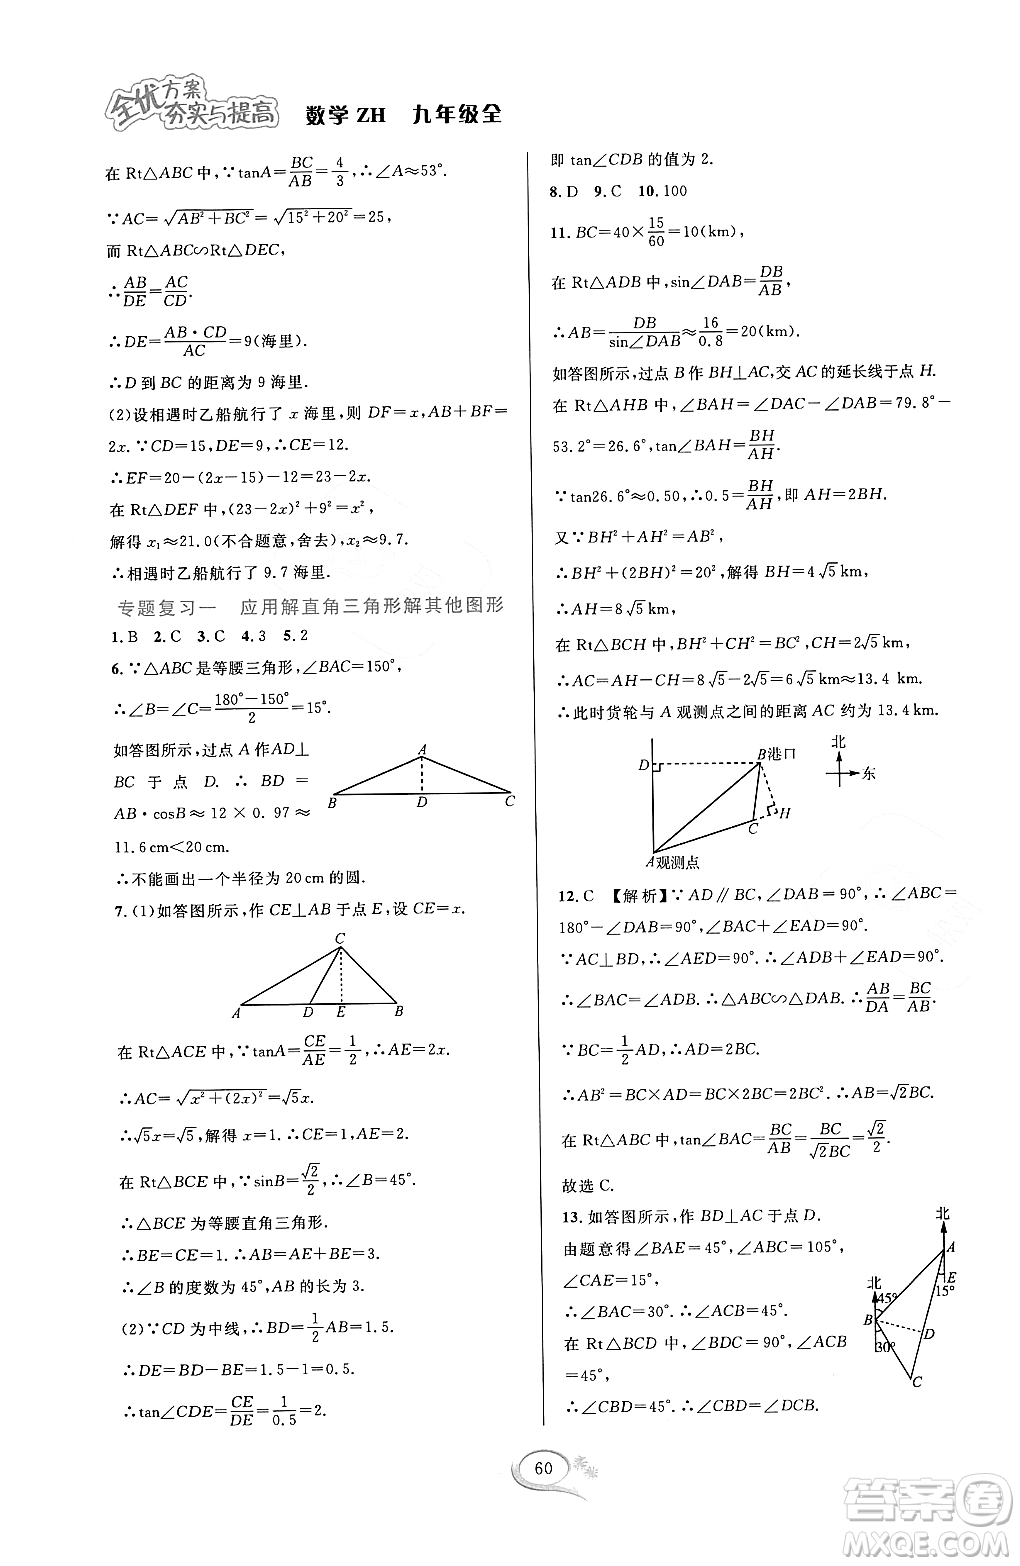 全优方案
夯实与提高 数学 ZH 九年级全
在 Rt△ABC 中,∵tanA=BC/AB=4/3,∴∠A≈53°.
∵AC=√(AB²+BC²)=√(15²+20²)=25,
而 Rt△ABC∽Rt△DEC,
∴AB/DE=AC/CD.
∴DE=AB·CD/AC=9(海里).
∴D 到 BC 的距离为 9 海里.
(2)设相遇时乙船航行了 x 海里,则 DF=x,AB+BF=
2x.∵CD=15,DE=9,∴CE=12.
∴EF=20-(2x-15)-12=23-2x.
在 Rt△DEF 中,(23-2x)²+9²=x²,
解得 x₁≈21.0(不合题意,舍去),x₂≈9.7.
∴相遇时乙船航行了 9.7 海里.
专题复习一 应用解直角三角形解其他图形
1.B 2.C 3.C 4.3 5.2
6.∵△ABC是等腰三角形,∠BAC=150°,
∴∠B=∠C=(180°-150°)/2=15°.
如答图所示,过点 A 作AD⊥
BC 于点 D. ∴ BD =
AB·cosB≈12×0.97≈
11.6 cm<20 cm.
A
B D C
∴不能画出一个半径为 20 cm 的圆.
7.(1)如答图所示,作 CE⊥AB 于点 E,设 CE=x.
C
A D E B
在 Rt△ACE 中,∵tanA=CE/AE=1/2,∴AE=2x.
∴AC=√(x²+(2x)²)=√5x.
∴√5x=√5,解得 x=1.∴CE=1,AE=2.
在 Rt△BCE 中,∵sinB=√2/2,∴∠B=45°.
∴△BCE 为等腰直角三角形.
∴BE=CE=1.∴AB=AE+BE=3.
∴∠B 的度数为 45°,AB 的长为 3.
(2)∵CD 为中线,∴BD=1/2AB=1.5.
∴DE=BD-BE=1.5-1=0.5.
∴tan∠CDE=CE/DE=1/0.5=2.
即 tan∠CDB 的值为 2.
8.D 9.C 10.100
11.BC=40×15/60=10(km),
在 Rt△ADB 中,sin∠DAB=DB/AB,
∴AB=DB/sin∠DAB≈16/0.8=20(km).
如答图所示,过点 B 作 BH⊥AC,交 AC 的延长线于点 H.
在 Rt△AHB 中,∠BAH=∠DAC-∠DAB=79.8°-
53.2°=26.6°,tan∠BAH=BH/AH.
∵tan26.6°≈0.50,∴0.5=BH/AH,即 AH=2BH.
又∵BH²+AH²=AB²,
∴BH²+(2BH)²=20²,解得 BH=4√5 km,
∴AH=8√5 km.
在 Rt△BCH 中,BH²+CH²=BC²,CH=2√5 km.
∴AC=AH-CH=8√5-2√5=6√5 km≈13.4 km.
∴此时货轮与 A 观测点之间的距离 AC 约为 13.4 km.
D B港口 北
东
C H
A观测点
12.C 【解析】∵AD∥BC,∠DAB=90°,∴∠ABC=
180°-∠DAB=90°,∠BAC+∠EAD=90°.
∵AC⊥BD,∴∠AED=90°.∴∠ADB+∠EAD=90°.
∴∠BAC=∠ADB.∴△ABC∽△DAB.∴AB/DA=BC/AB.
∵BC=1/2AD,∴AD=2BC.
∴AB²=BC×AD=BC×2BC=2BC².∴AB=√2BC.
在 Rt△ABC 中,tan∠BAC=BC/AB=BC/√2BC=√2/2.
故选 C.
13.如答图所示,作 BD⊥AC 于点 D.
由题意得∠BAE=45°,∠ABC=105°,
∠CAE=15°,
∴∠BAC=30°.∴∠ACB=45°.
在 Rt△BCD 中,∠BDC=90°,∠ACB
=45°,
∴∠CBD=45°.∴∠CBD=∠DCB.
北
A
北 E
45° 15°
B D
30°
C
60
答案圈
MXQE.COM